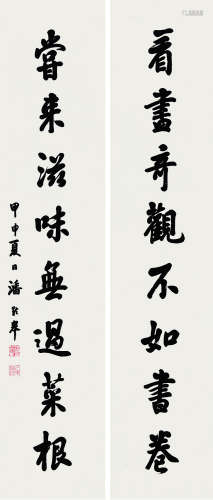 看盡奇觀不如書卷
嘗来滋味無過菜根
甲申夏日潘齡皋